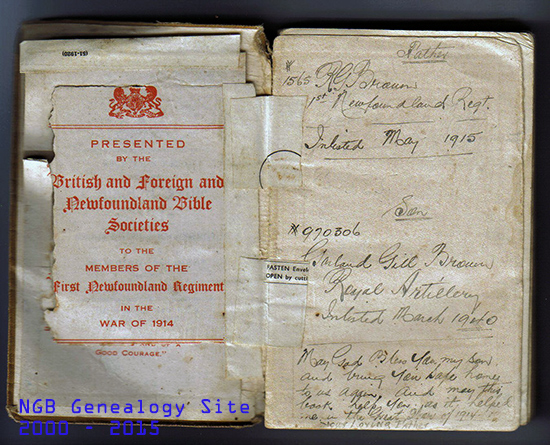 (51-1920)
PRESENTED
BY THE
British and Foreign and
Newfoundland Bible
Societies
TO THE
MEMBERS OF THE
First Newfoundland Regiment
IN THE
WAR OF 1914
AND OF A
GOOD COURAGE."
FASTEN Envel
OPEN by cutti
NGB Genealogy Site
2000 - 2015
Father
# 1565 R G Brown
1st Newfoundland Regt.
Inlisted May 1915
Son
# 970306
Garland Gill Brown
Royal Artillery
Inlisted March 1940
May God Bless You my son
and bring you safe home
to us again and may this
book help you as it helped
me in the Great War of 1914-
Loving Father